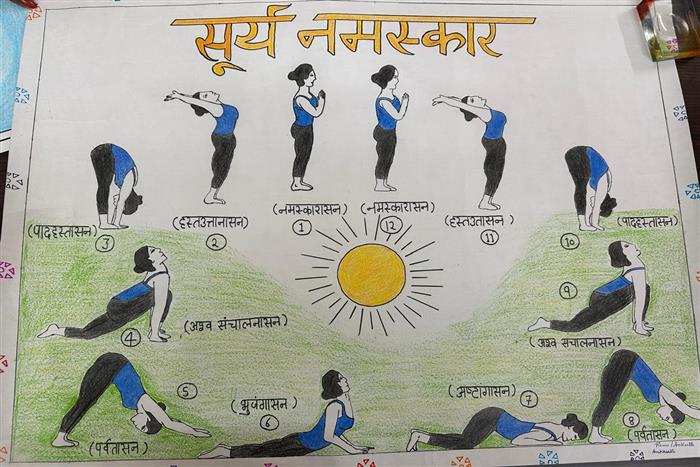 सूर्य नमस्कार
(नमस्कारासन)
1
(हस्तउत्तानासन)
2
(पादहस्तासन)
3
4
(अश्व संचालनासन)
5
(पर्वतासन)
(भुवंगासन)
6
(अष्टागासन)
7
8
(पर्वतासन)
9
(अश्व संचालनासन)
10
(पादहस्तासन)
(हस्तउतासन)
11
(नमस्कारासन)
12